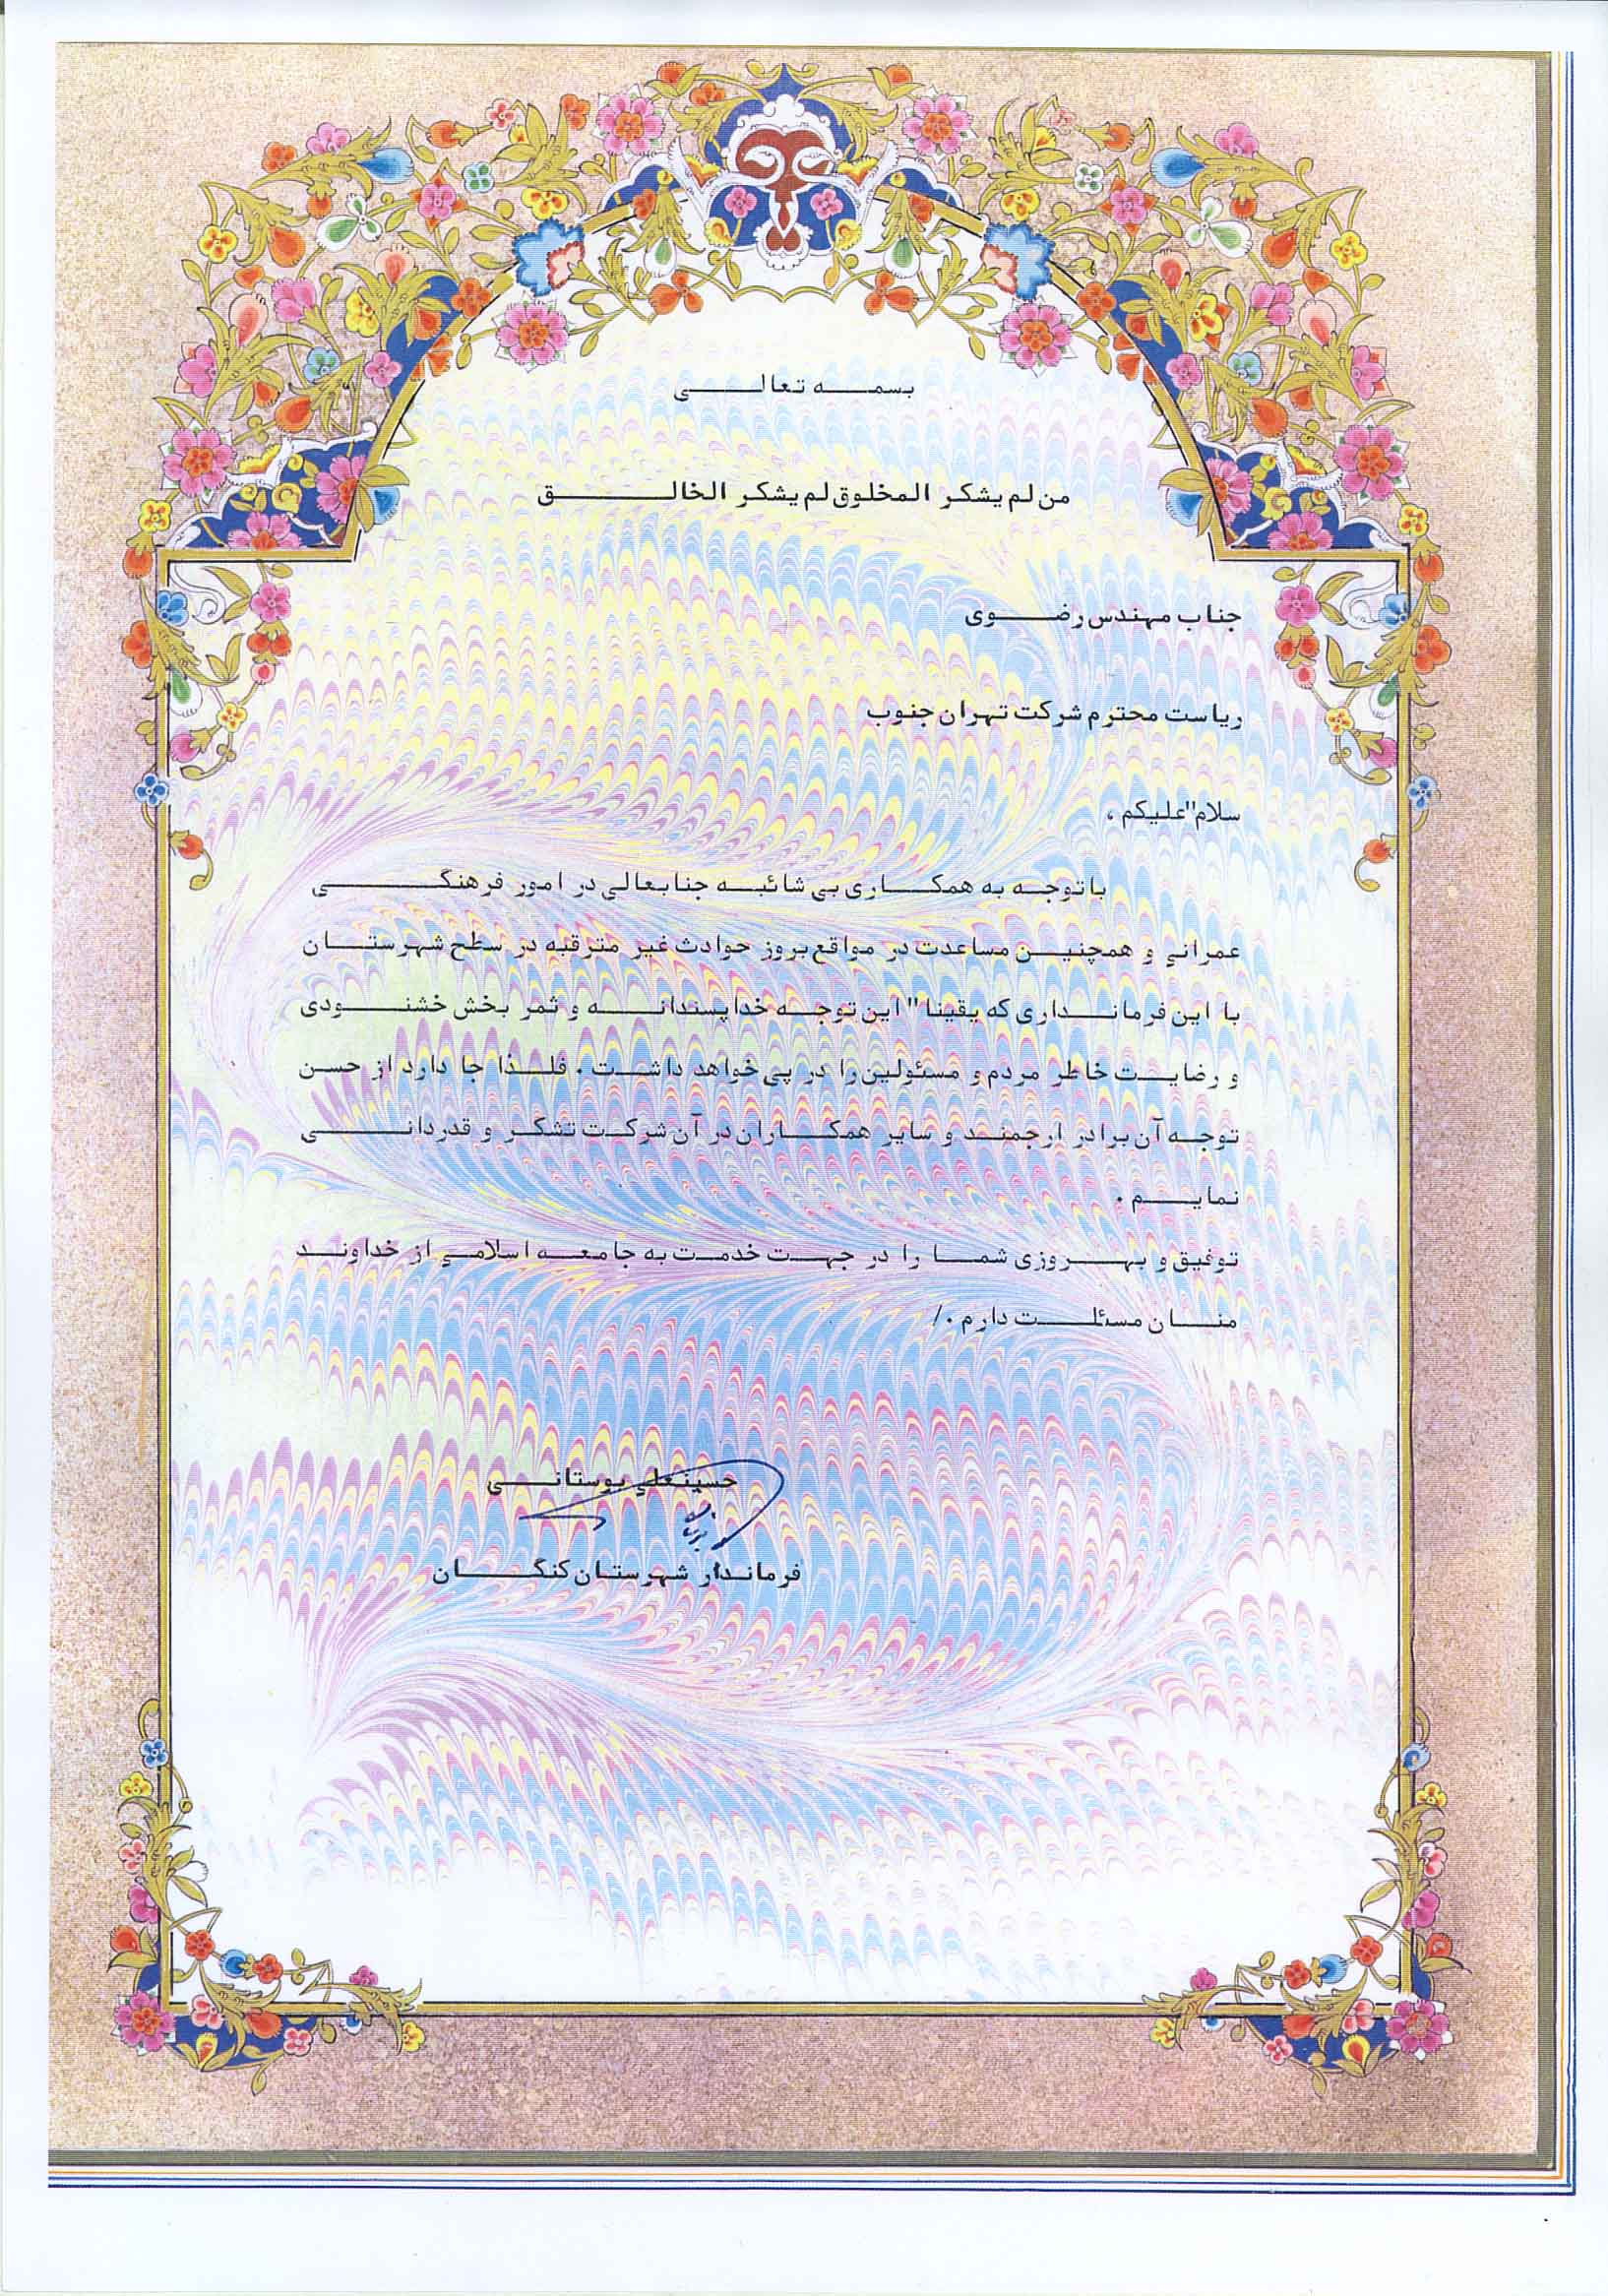 بسمه تعالی
من لم یشکر المخلوق لم یشکر الخالق
جناب مهندس رضوی
ریاست محترم شرکت تهران جنوب
سلام"علیکم ،
با توجه به همکاری بی شائبه جنابعالی در امور فرهنگی
عمرانی و همچنین مساعدت در مواقع بروز حوادث غیر مترقبه در سطح شهرستان
با این فرمانداری که یقینا" این توجه خداپسندانه و ثمر بخش خشنودی
و رضایت خاطر مردم و مسئولین را در پی خواهد داشت . فلذا جا دارد از حسن
توجه آن برادر ارجمند و سایر همکاران در آن شرکت تشکر و قدردانی
نمایم .
توفیق و بهروزی شما را در جهت خدمت به جامعه اسلامی از خداوند
منان مسئلت دارم ./
حسینعلی بوستانی
فرماندار شهرستان کنگان